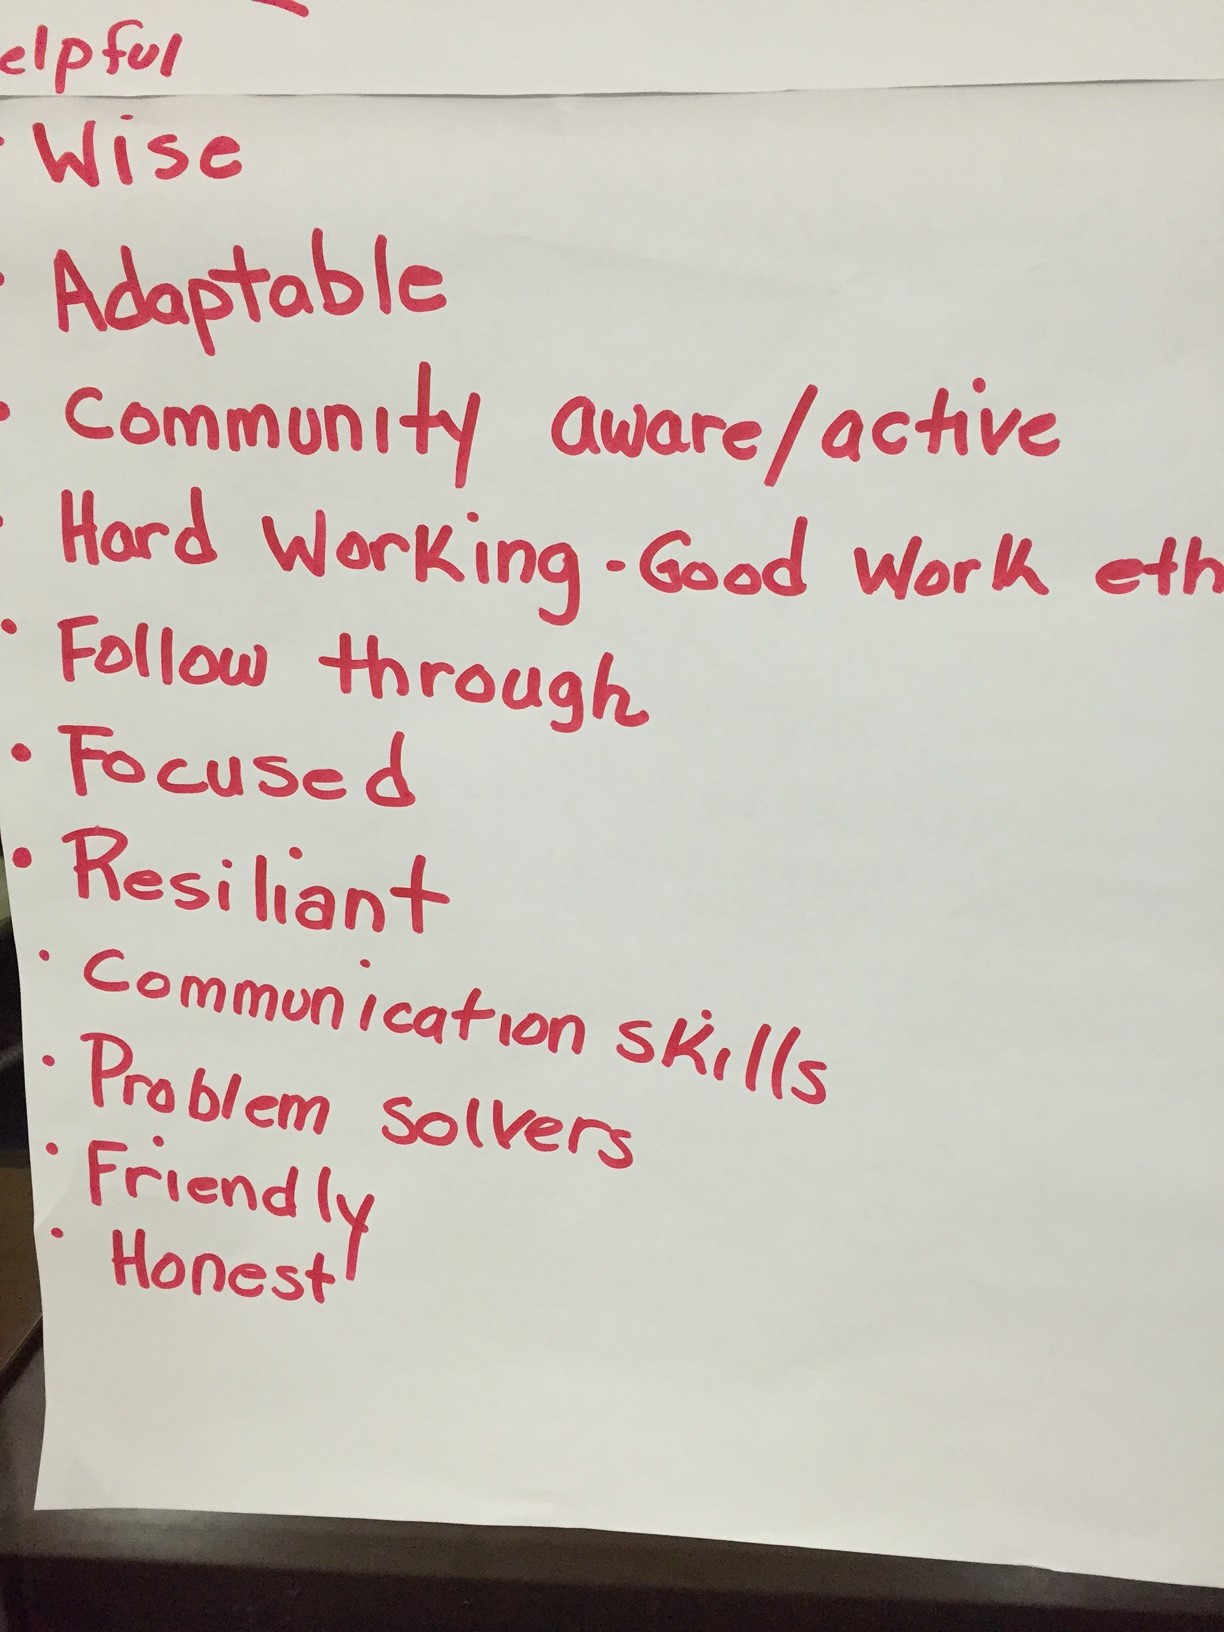 elpful
• Wise
• Adaptable
• Community aware/active
• Hard Working - Good Work eth
• Follow through
• Focused
• Resiliant
• Communication skills
• Problem solvers
• Friendly
• Honest